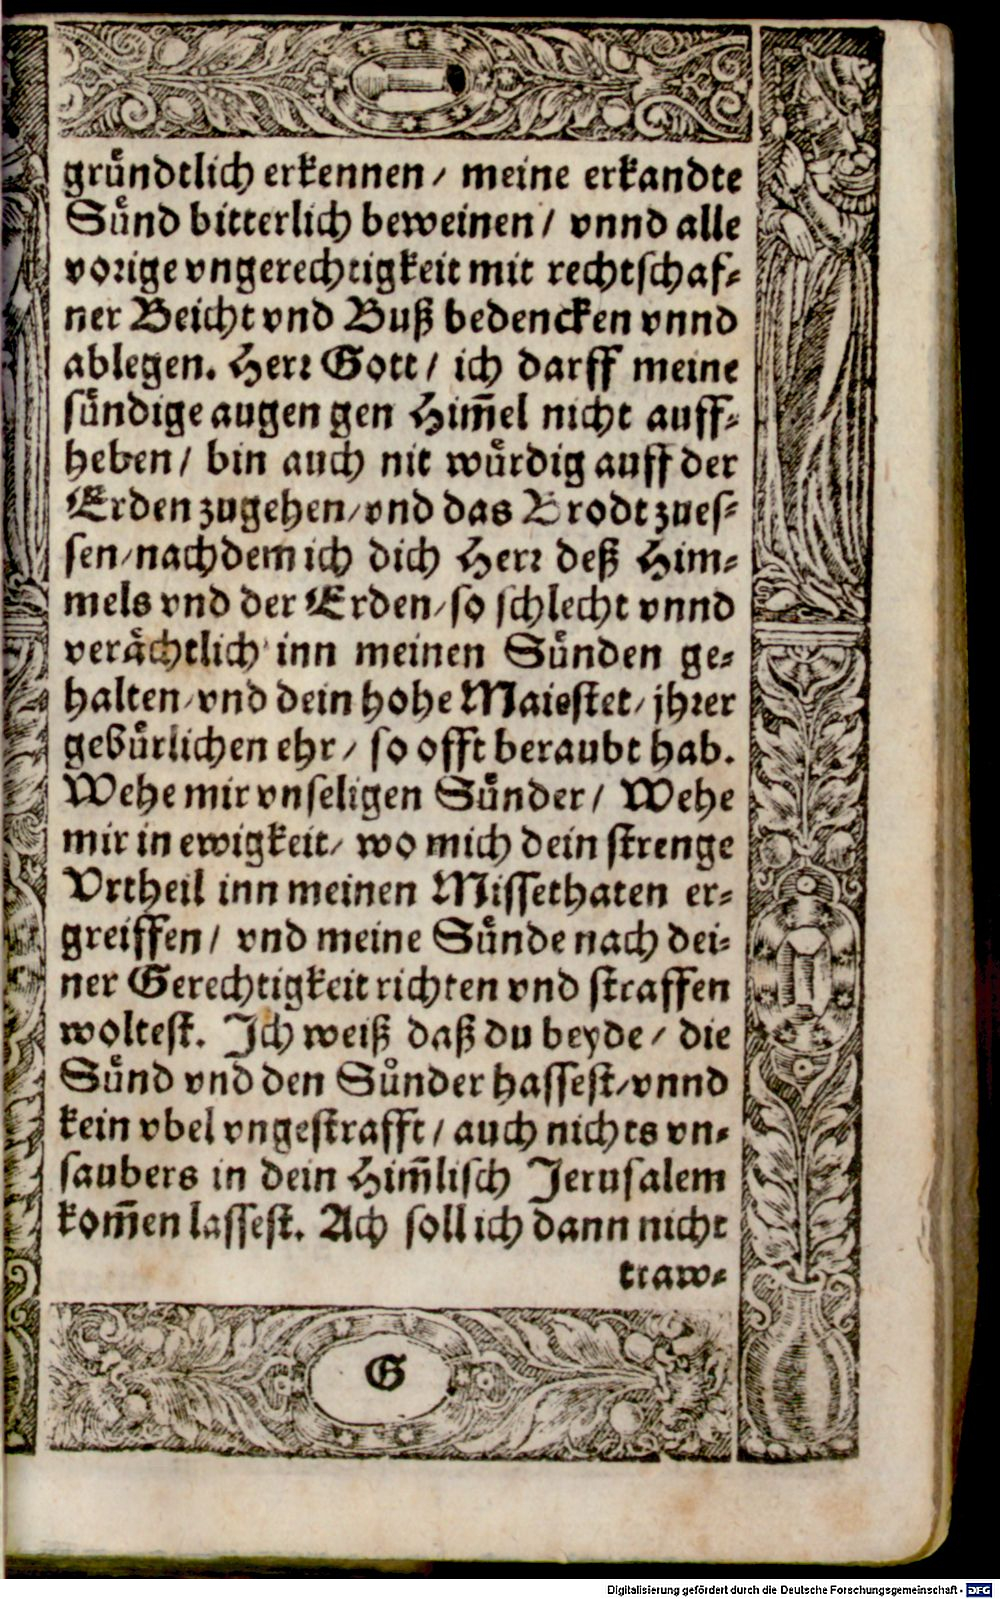 gruͤndtlich erkennen / meine erkandte
Suͤnd bitterlich beweinen / vnnd alle
vorige vngerechtigkeit mit rechtschaf⸗
ner Beicht vnd Buß bedencken vnnd
ablegen. Herr Gott / ich darff meine
suͤndige augen gen Him̄el nicht auff⸗
heben / bin auch nit wuͤrdig auff der
Erden zugehen / vnd das Brodt zues⸗
sen / nachdem ich dich Herr deß Him⸗
mels vnd der Erden / so schlecht vnnd
veraͤchtlich inn meinen Suͤnden ge⸗
halten / vnd dein hohe Maiestet / jhrer
gebuͤrlichen ehr / so offt beraubt hab.
Wehe mir vnseligen Suͤnder / Wehe
mir in ewigkeit / wo mich dein strenge
Vrtheil inn meinen Missethaten er⸗
greiffen / vnd meine Suͤnde nach dei⸗
ner Gerechtigkeit richten vnd straffen
woltest. Ich weiß daß du beyde / die
Suͤnd vnd den Suͤnder hassest / vnnd
kein vbel vngestrafft / auch nichts vn⸗
saubers in dein Him̄lisch Jerusalem
kom̄en lassest. Ach soll ich dann nicht
traw⸗
G
Digitalisierung gefördert durch die Deutsche Forschungsgemeinschaft - DFG